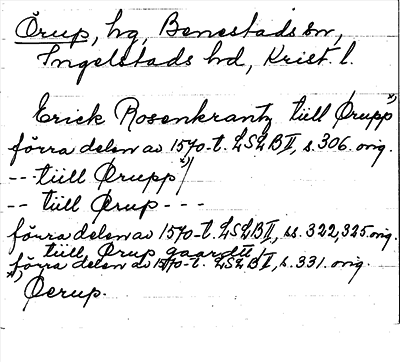 Örup, hg, Benestads sn,
Ingelstads hd, Krist. l.
Erick Rosenkrantz tiill Ørupp x)
förra delen av 1570-t. LSLB II, s. 306. orig.
-- tiill Ørupp x)/
-- tiill Ørup ---
förra delen av 1570-t. LSLB II, ss. 322, 325. orig.
tiill Ørup gaardtt /
förra delen av 1570-t. LSLB II, s. 331. orig.
x) Øerup.